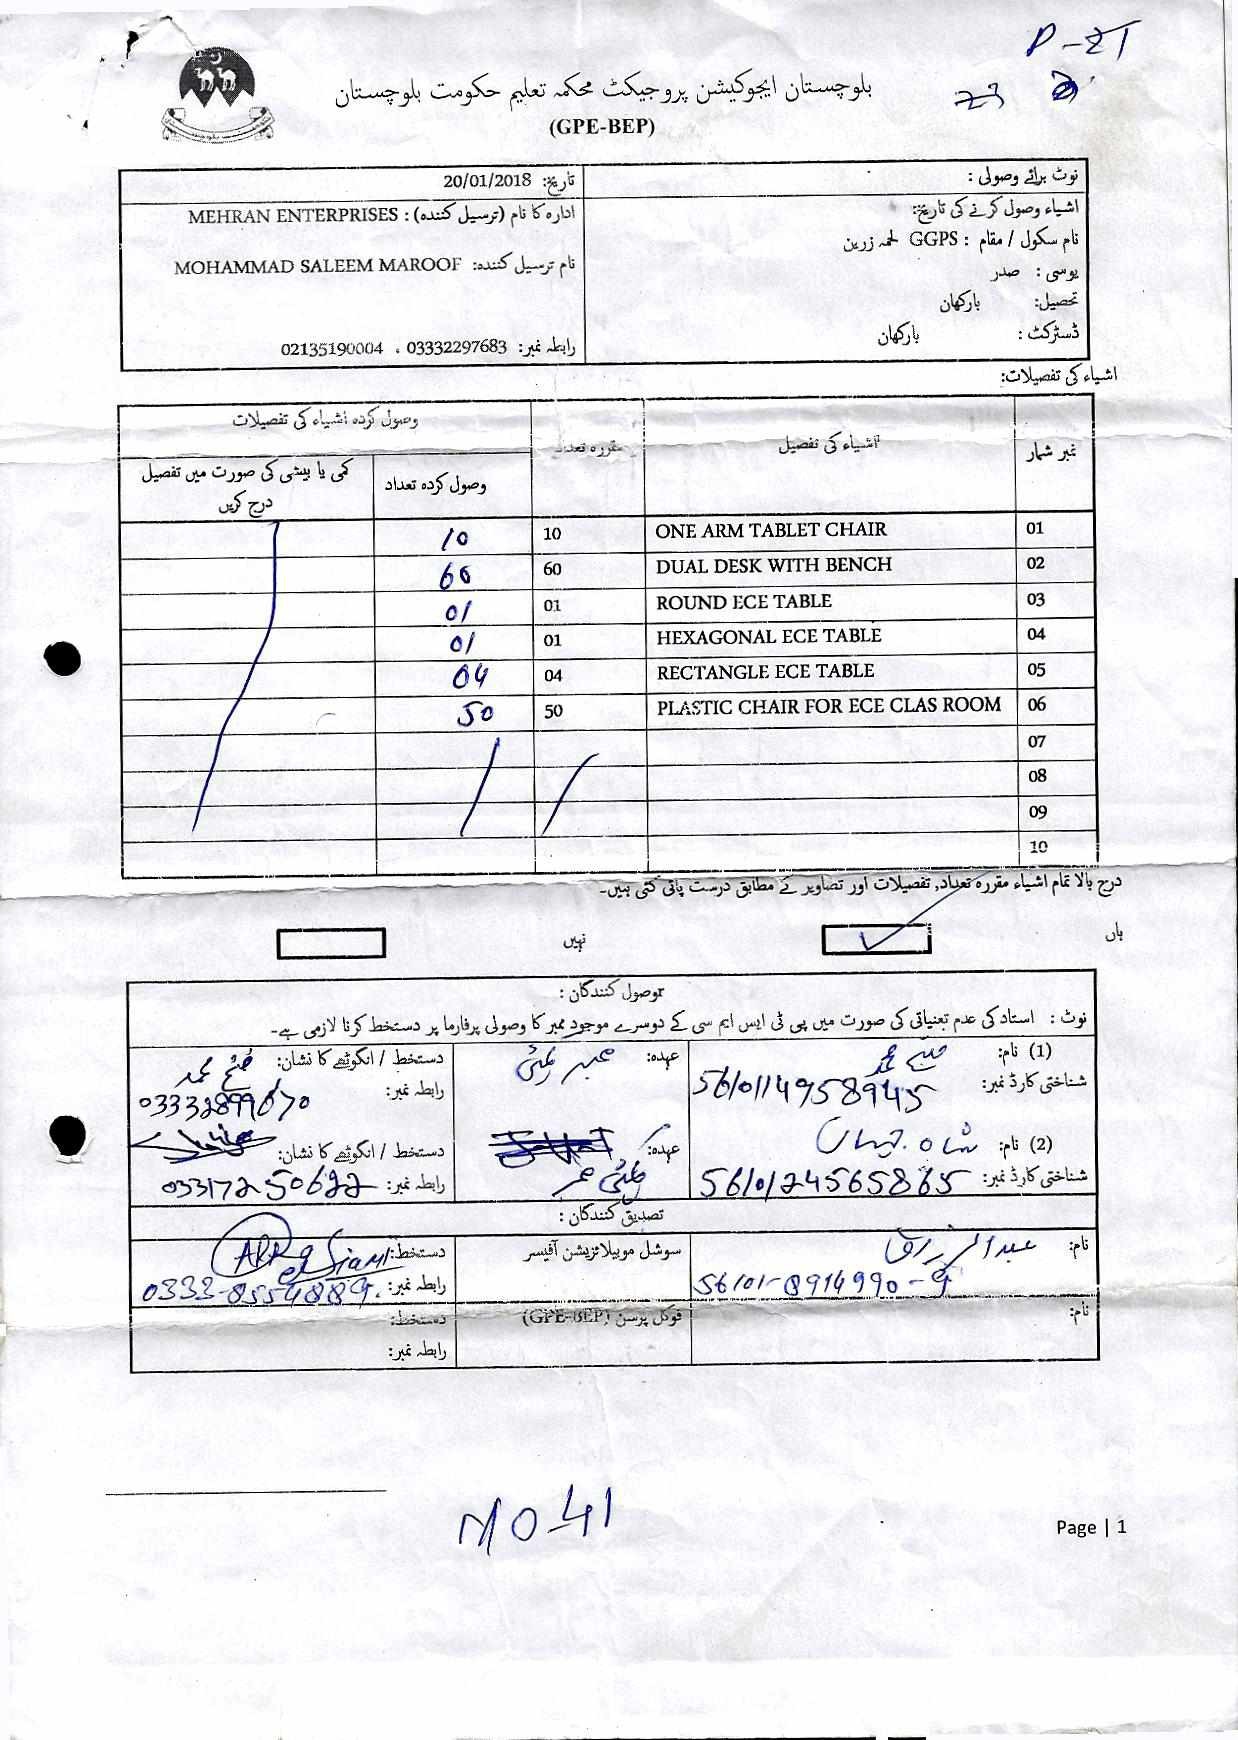 P-21
23
بلوچستان ایجوکیشن پروجیکٹ محکمہ تعلیم حکومت بلوچستان
(GPE-BEP)
نوٹ برائے وصولی :
اشیاء وصول کرنے کی تاریخ:
نام سکول / مقام : GGPS لحمہ زرین
یوسی : صدر
تحصیل: بارکھان
ڈسٹرکٹ : بارکھان
تاریخ: 20/01/2018
ادارہ کا نام (ترسیل کنندہ) : MEHRAN ENTERPRISES
نام ترسیل کنندہ: MOHAMMAD SALEEM MAROOF
رابطہ نمبر: 03332297683 ، 02135190004
اشیاء کی تفصیلات:
نمبر شمار اشیاء کی تفصیل مقررہ تعداد وصول کردہ اشیاء کی تفصیلات
وصول کردہ تعداد کمی یا بیشی کی صورت میں تفصیل درج کریں
01 ONE ARM TABLET CHAIR 10 10
02 DUAL DESK WITH BENCH 60 60
03 ROUND ECE TABLE 01 01
04 HEXAGONAL ECE TABLE 01 01
05 RECTANGLE ECE TABLE 04 04
06 PLASTIC CHAIR FOR ECE CLAS ROOM 50 50
07
08
09
10
درج بالا تمام اشیاء مقررہ تعداد, تفصیلات اور تصاویر کے مطابق درست پائی گئی ہیں۔
ہاں ✓ نہیں
وصول کنندگان :
نوٹ : استاد کی عدم تعیناتی کی صورت میں پی ٹی ایس ایم سی کے دوسرے موجود ممبر کا وصولی پرفارما پر دستخط کرنا لازمی ہے۔
(1) نام: فتح محمد عہدہ: ممبر دستخط / انگوٹھے کا نشان: فتح محمد
شناختی کارڈ نمبر: 5610114958945 رابطہ نمبر: 03332899670
(2) نام: شاہ جہان عہدہ: دستخط / انگوٹھے کا نشان:
شناختی کارڈ نمبر: 5610124565865 رابطہ نمبر: 03317250622
تصدیق کنندگان :
نام: عبدالرزاق سوشل موبیلائزیشن آفیسر دستخط:
56101-8914990-9 رابطہ نمبر: 0333-8554889
نام: فوکل پرسن (GPE-BEP) دستخط:
رابطہ نمبر:
NO-41
Page | 1